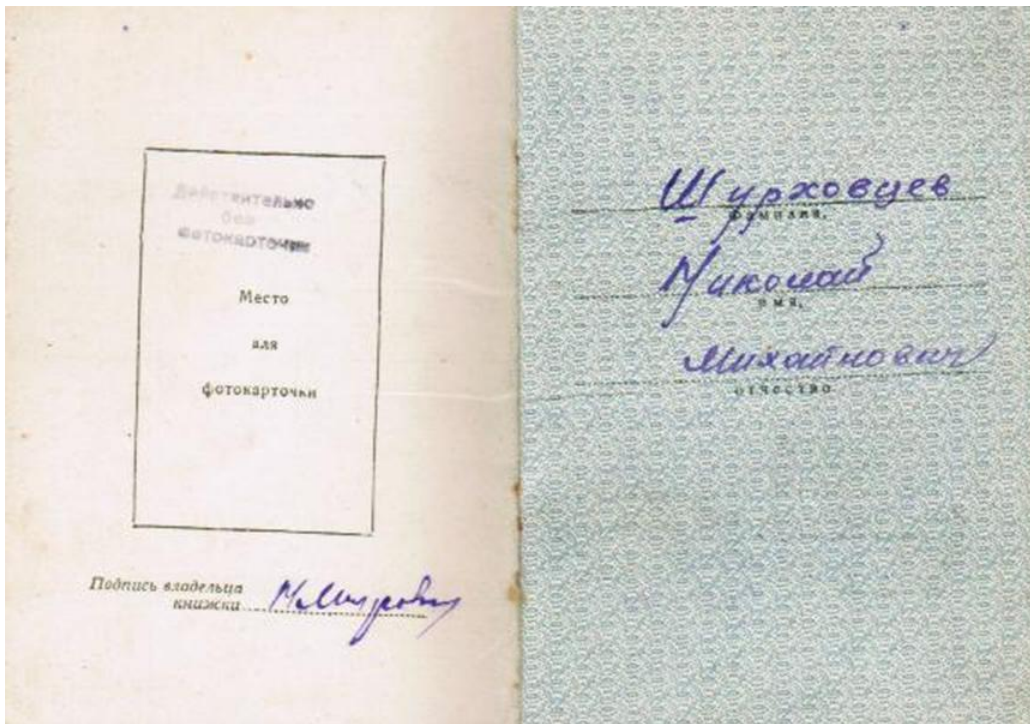 Действительно
без
фотокарточки
Место
для
фотокарточки
Подпись владельца
книжки
Шурховцев
фамилия,
Николай
имя,
Михайлович
отчество